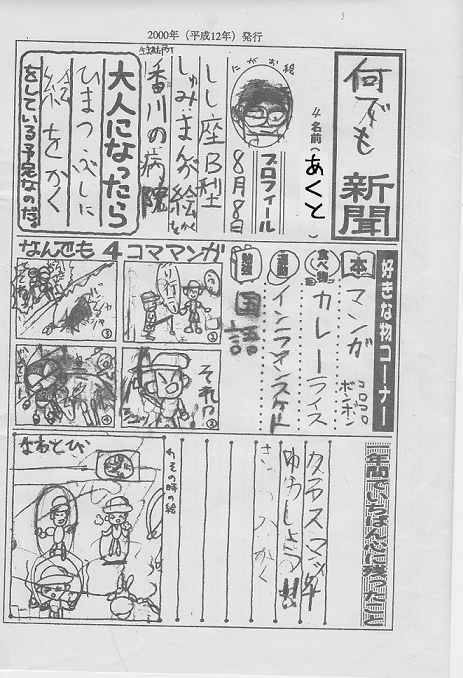 2000年（平成12年）発行
何でも新聞
4 名前（あくと）
にがお絵
プロフィール
8月8日
しし座B型
しゅみ・まんが絵をかく
生まれた所
香川の病院
大人になったら
ひまつぶしに
絵をかく
をしている予定なのだ。
好きな物コーナー
本
マンガ
コロコロ
ボンボン
食べ物
カレーライス
運動
インラインスケート
勉強
国語
なんでも4コママンガ
①
②
それっ
③
④
一年間でいちばん心に残ったこと
クラスマッチ
ゆうしょう!!
その時の絵
なわとび